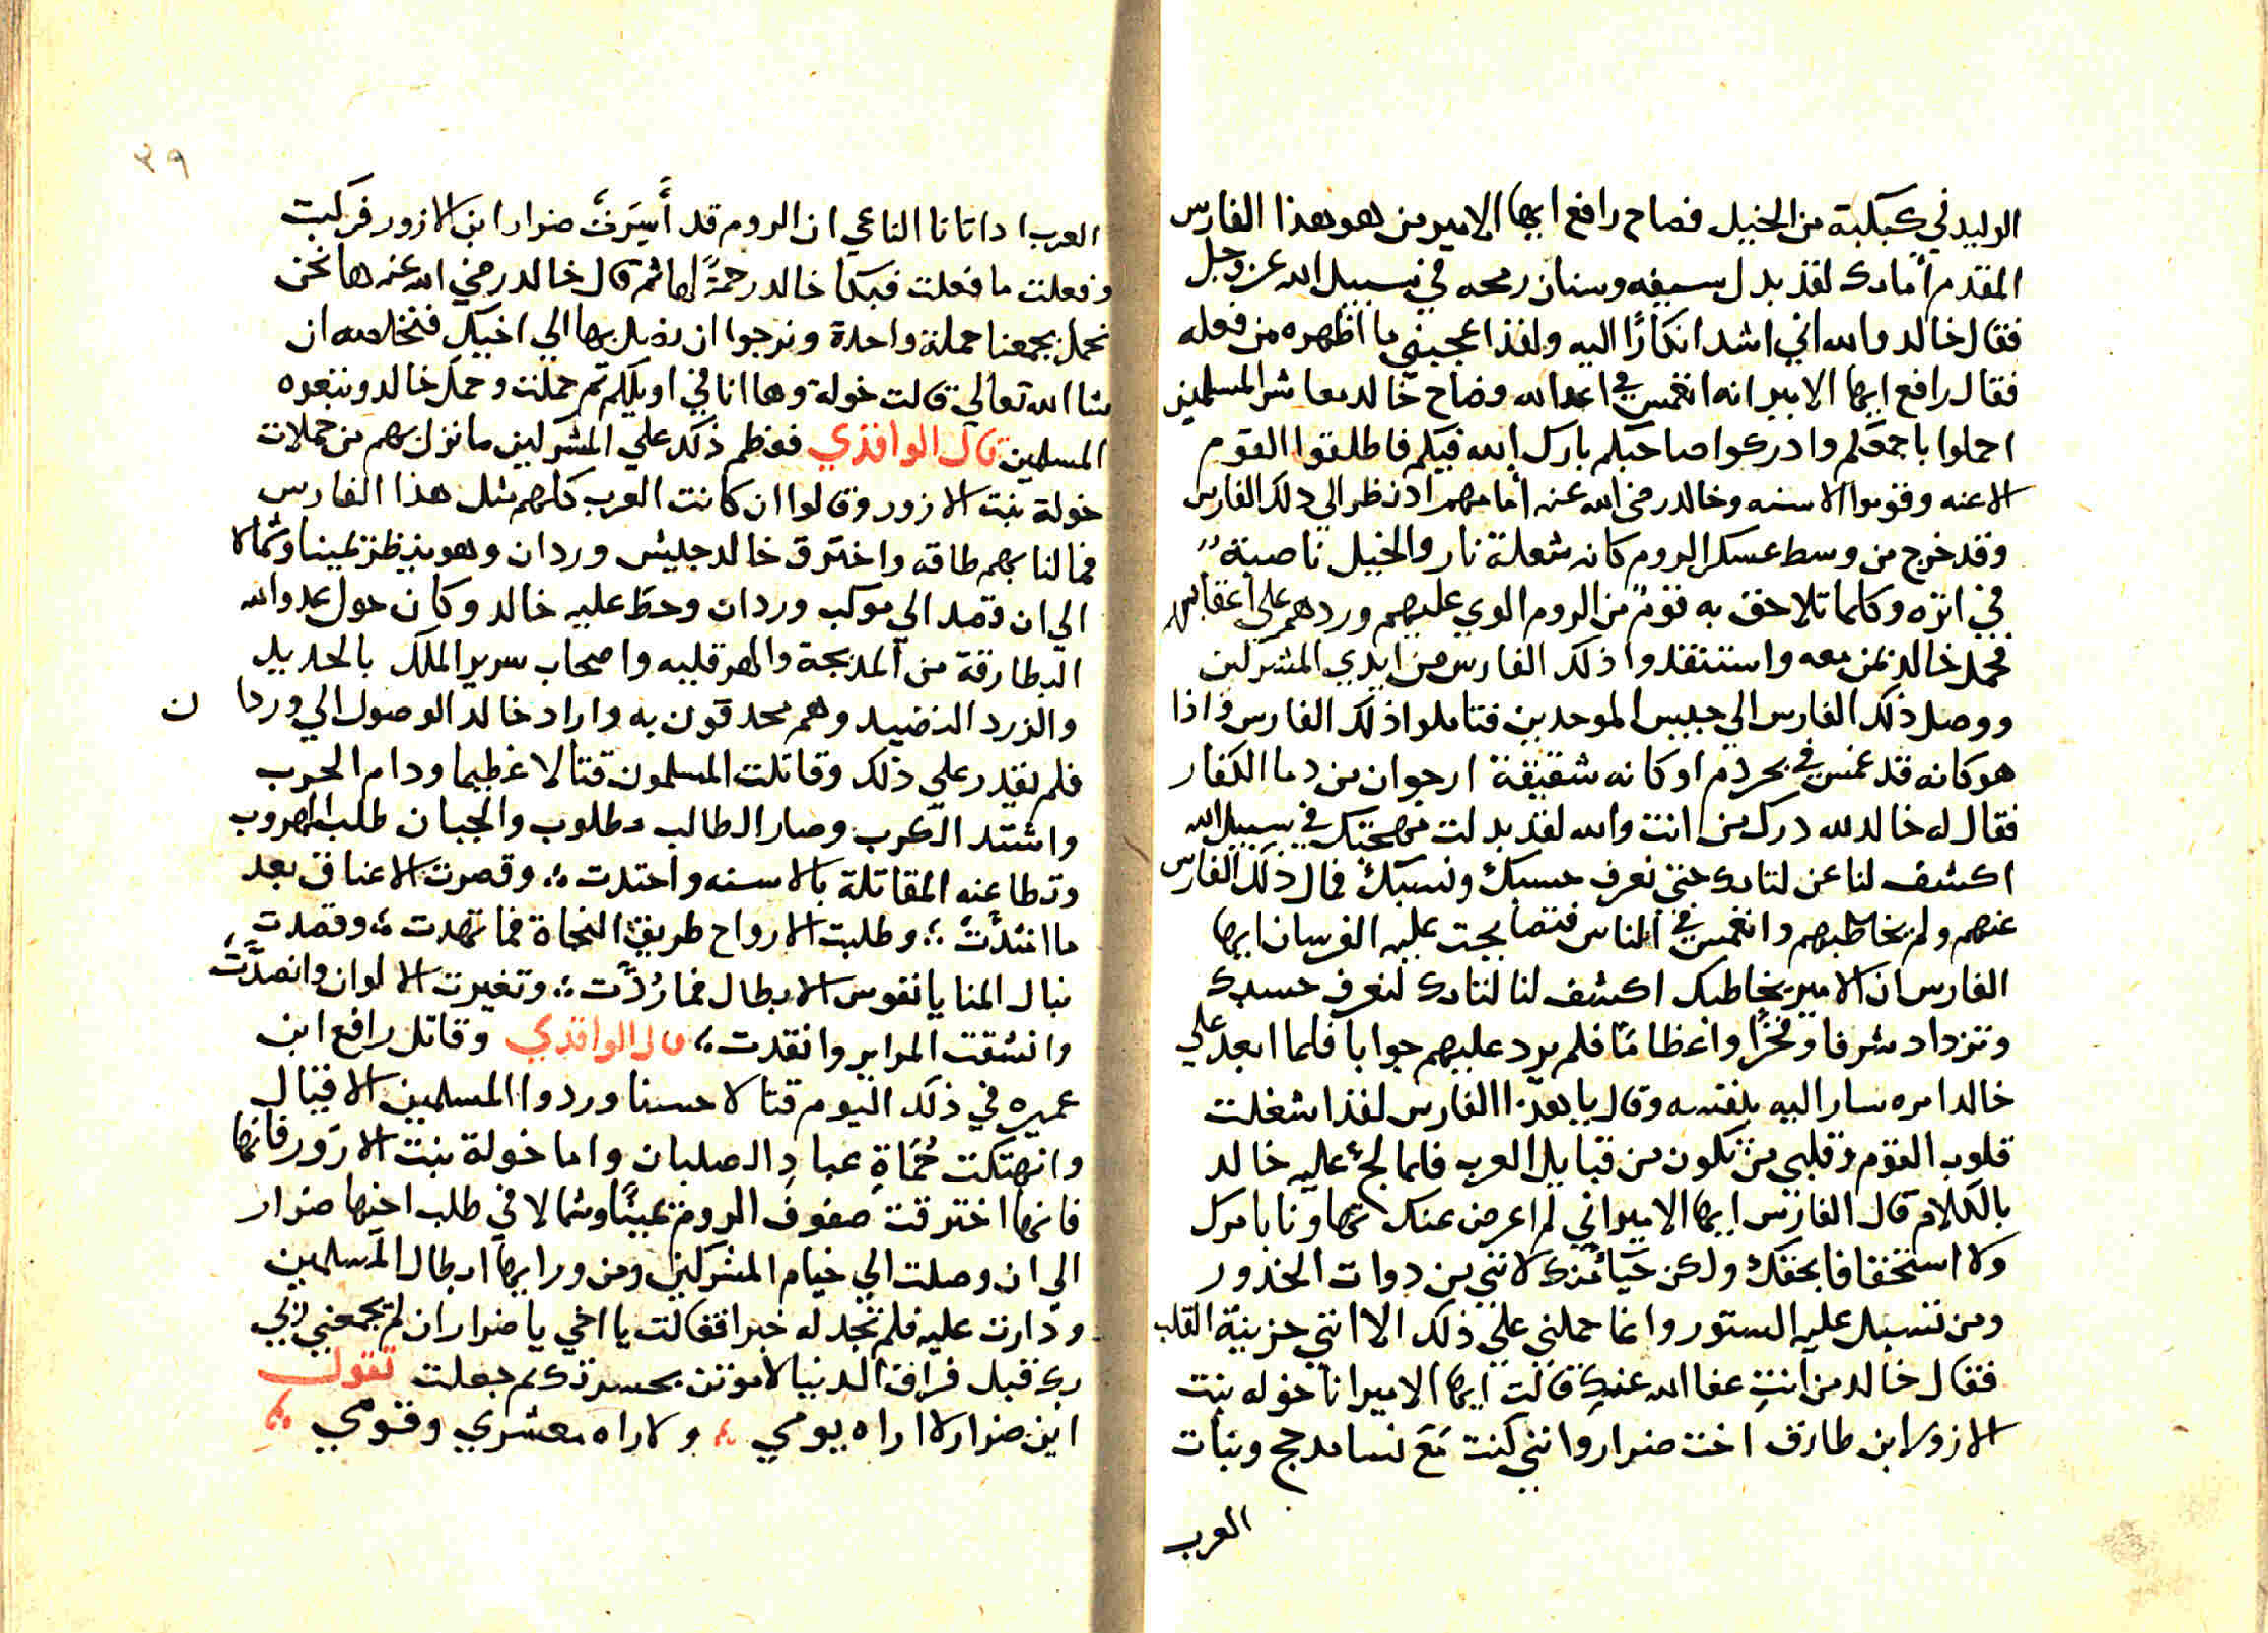 الوليد في كبكبة من الخيل فصاح رافع ايها الامير من هو هذا الفارس
المقدم أمامك لقد بدل سيفه وسنان رمحه في سبيل الله عز وجل
فقال خالد والله اني اشد انكارًا اليه ولقد اعجبني ما اظهره من فعله
فقال رافع ايها الامير انه انغمس في اعدا الله وصاح خالد معاشر المسلمين
احملوا باجمعكم وادركوا صاحبكم بارك الله فيكم فاطلقوا القوم
الاعنه وقوموا الاسنه وخالد رضى الله عنه أمامهم اد نظر الي دلك الفارس
وقد خرج من وسط عسكر الروم كانه شعلة نار والخيل ناصبة
في اثره وكلما تلاحق به قوم من الروم الوي عليهم وردهم علي أعقابهم
فحمل خالد بمن معه واستنقدوا ذلك الفارس من ايدي المشركين
ووصل ذلك الفارس الي جيس الموحدين فتاملوا ذلك الفارس واذا
هو كانه قد غمس في بحر دم او كانه شقيقة ارجوان من دما الكفار
فقال له خالد لله درك من انت والله لقد بدلت مهجتك في سبيل الله
اكشف لنا عن لثامك حتى نعرف حسبك ونسبك فمال ذلك الفارس
عنهم ولم يخاطبهم وانغمس في الناس فتصايحت عليه الفرسان ايها
الفارس ان الامير يخاطبك اكشف لنا لثامك لنعرف حسبك
وتزداد شرفا وفخرًا واعظامًا فلم يرد عليهم جوابا فلما ابعد علي
خالد امره سار اليه بنفسه وقال يا هذا الفارس لقد اشغلت
قلوب القوم وقلبي من تكون من قبايل العرب فلما لجّ عليه خالد
بالكلام قال الفارس ايها الامير اني لم اعرض عنك تهاونا بامرك
ولا استخفافا بحقك ولكن حيَاءً منك لانني من دوات الخدور
ومن تنسبل عليه الستور وانما حملني علي ذلك الا انني حزينة القلب
فقال خالد من أنتِ عفا الله عنكِ قالت ايها الامير انا خوله بنت
الازور ابن طارق اخت ضرار وانني كنت مَعَ نسا مدحج وبنات
العرب
٣٩
العرب ادا تانا الناعي ان الروم قد أسرَت ضرار ابن الازور فركبت
وفعلت ما فعلت فبكا خالد رحمةً لها ثم قال خالد رضي الله عنه ها نحن
نحمل بجمعنا حملة واحدة ونرجوا ان نصل بها الي اخيك فنخلصه ان
شا الله تعالي قالت خولة وها انا في اويلكم ثم حملت وحمل خالد وتبعوه
المسلمين قال الواقدي فعظم ذلك علي المشركين ما نزل بهم من حملات
خولة بنت الازور وقالوا ان كانت العرب كلهم مثل هذا الفارس
فما لنا بهم طاقه واخترق خالد جليش وردان وهو ينظر يمينا وشمالا
الي ان قصد الي موكب وردان وحط عليه خالد وكان حول عدو الله
البطارقة من المذبحة والهرقليه واصحاب سرير الملك بالحديد
والزرد النضيد وهم محدقون به واراد خالد الوصول الي وردا ن
فلم يقدر علي ذلك وقاتلت المسلمون قتالا عظيما ودام الحرب
واشتد الكرب وصار الطالب مطلوب والجبان طلب الهروب
وتطاعنه المقاتلة بالاسنه واحتدت ؛ وقصرت الاعناق بعد
ما امتدَّت ؛ وطلبت الارواح طريق النجاة فما تهدت ؛ وقصدت
نبال المنايا نفوس الابطال فما رُدَّت ؛ وتغيرت الالوان وانصدَّت
وانشقت المراير وانقدت ؛ قال الواقدي وقاتل رافع ابن
عميره في ذلك اليوم قتالا حسنا وردوا المسلمين الاقتال
وانهتكت حُمَاةِ عبادِ الصلبان واما خولة بنت الازور فانها
فانها اخترقت صفوف الروم يمينًا وشمالا في طلب اخيها ضرار
الي ان وصلت الي خيام المشركين ومن ورايها ابطال المسلمين
ودارت عليه فلم تجد له خبرا فقالت يا اخي يا ضرار ان لم يجمعني ربي
بك قبل فراق الدنيا لاموتن بحسرتك ثم جعلت تقول
اين ضرار لا اراه يومي ؛ ولا راه معشري وقومي ؛